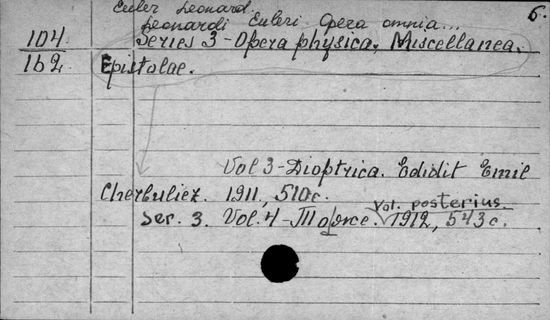 6.
Euler Leonard.
Leonardi Euleri Opera omnia...
104 Series 3 - Opera physica, Miscellanea.
162 Epistolae.
Vol 3 - Dioptrica. Edidit Emil
Cherbuliez. 1911, 510 c.
Ser. 3. Vol. 4 - То же. Vol. posterius. 1912, 543 c.